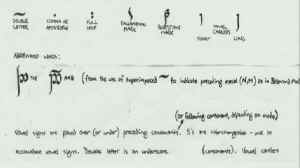 DOUBLE LETTER
FULL STOP
EXCLAMATION MARK
QUESTION MARK
SHORT
LONG
VOWEL CARRIERS
ABBREVIATED WORDS:
THE
(from the use of superimposed ~ to indicate preceding nasal (N,M) as in
(or following consonant, depending on mode)
Vowel signs are placed over (or under) preceding consonants. S's are interchangeable - use to
accomodate vowel signs. Double letter is an underscore. (consonants). Vowel carriers